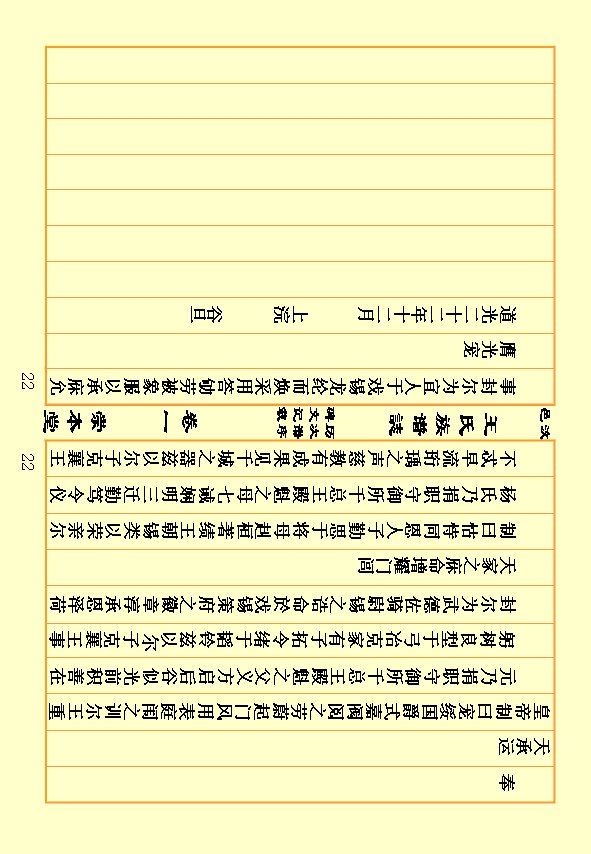 奉
天承运
皇帝制曰宠绥国爵式嘉阀阅之劳蔚起门风用表庭闱之训尔王重
元乃捐职守御所千总王殿魁之父义方启后谷似光前积善在
躬树良型于弓冶克家有子拓令绪于韬钤兹以尔子克襄王事
封尔为武德佐骑尉锡之诰命於戏锡策府之徽章洊承恩泽荷
天家之庥命增耀门闾
制曰怙恃同恩人子勤思于将母赳桓著绩王朝锡类以荣亲尔
杨氏乃捐职守御所千总王殿魁之母七诫娴明三迁勤笃令仪
不忒早流珩瑀之声慈教有成果见干城之器兹以尔子克襄王
22
汶邑 王氏族譜誌 历次谱序 碑文记载 卷一 崇本堂
事封尔为宜人于戏锡龙纶而焕采用答劬劳被象服以承庥允
膺光宠
道光二十二年十二月 上浣 谷旦
22